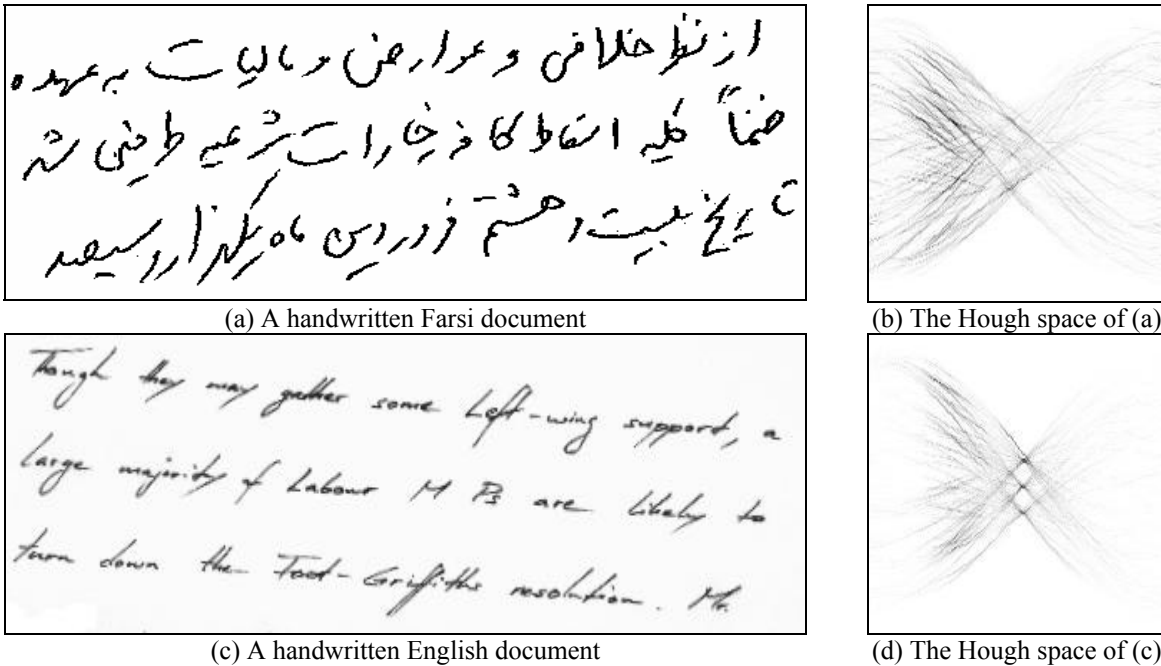 از نظر خلافی و عوارض و مالیات به عهده
ضمناً کلیه اسقاط کافه خیارات شرعیه طرفین شد
تاریخ بیست و هشتم فروردین ماه یکهزار و سیصد
(a) A handwritten Farsi document
(b) The Hough space of (a)
Though they may gather some Left-wing support, a
large majority of Labour M Ps are likely to
turn down the Foot-Griffiths resolution. Mr.
(c) A handwritten English document
(d) The Hough space of (c)